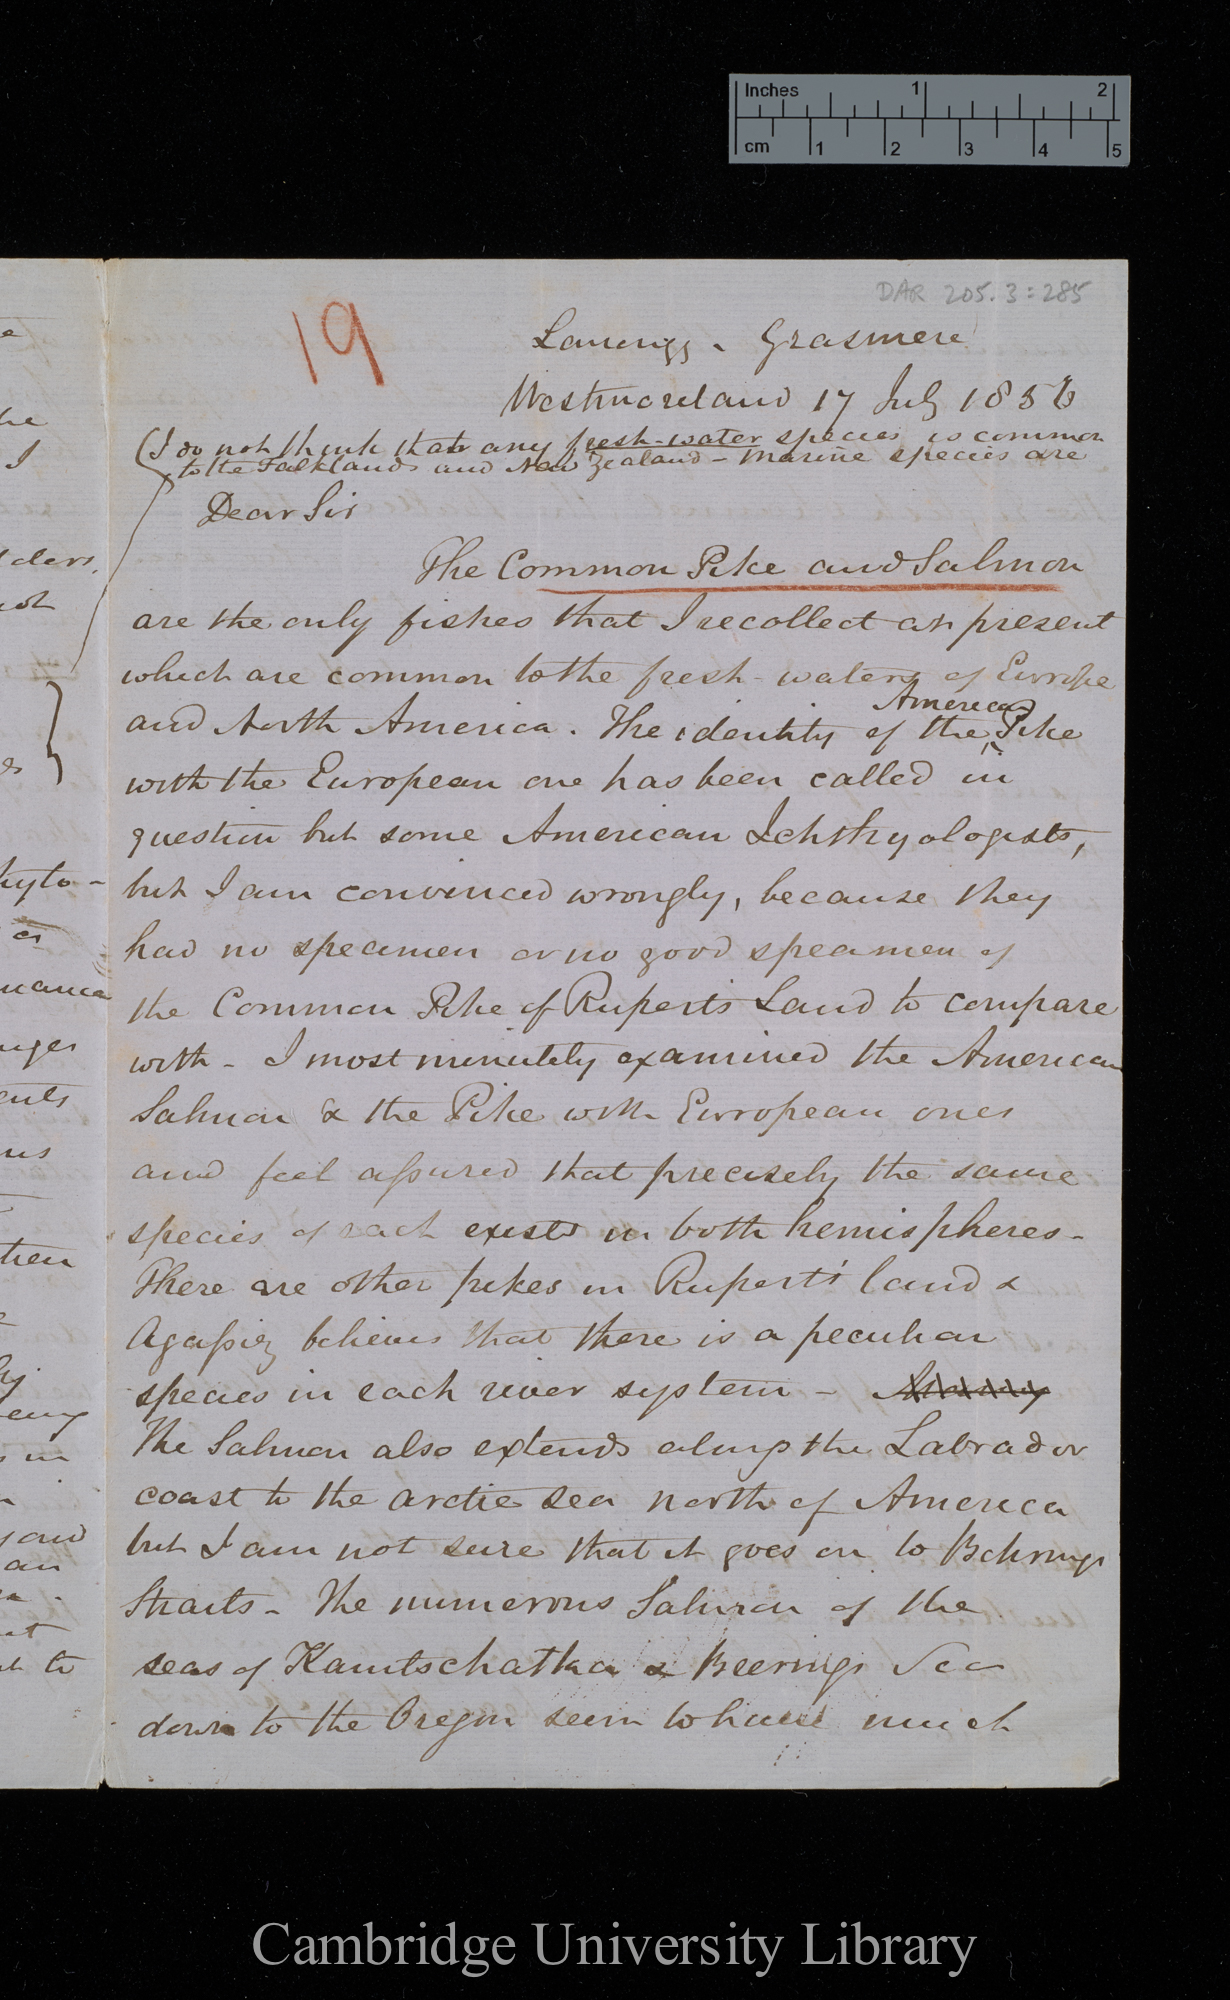 Inches 1 2
cm 1 2 3 4 5
DAR 205.3:285
19
Lancrigg - Grasmere
Westmoreland 17 July 1856
(I do not think that any fresh-water species is common
to the Falklands and New Zealand - marine species are
Dear Sir
The Common Pike and Salmon
are the only fishes that I recollect at present
which are common to the fresh-waters of Europe
and North America. The identity of the American Pike
with the European one has been called in
question but some American Ichthyologists,
but I am convinced wrongly, because they
had no specimen or no good specimen of
the Common Pike of Rupert's Land to compare
with - I most minutely examined the American
Salmon & the Pike with European ones
and feel assured that precisely the same
species of each exists in both hemispheres -
There are other pikes in Rupert's land &
Agassiz believes that there is a peculiar
species in each river system -
The Salmon also extends along the Labrador
coast to the arctic sea north of America
but I am not sure that it goes on to Behrings
Straits - The numerous Salmon of the
seas of Kamtschatka & Beerings Sea
down to the Oregon seem to have much
Cambridge University Library